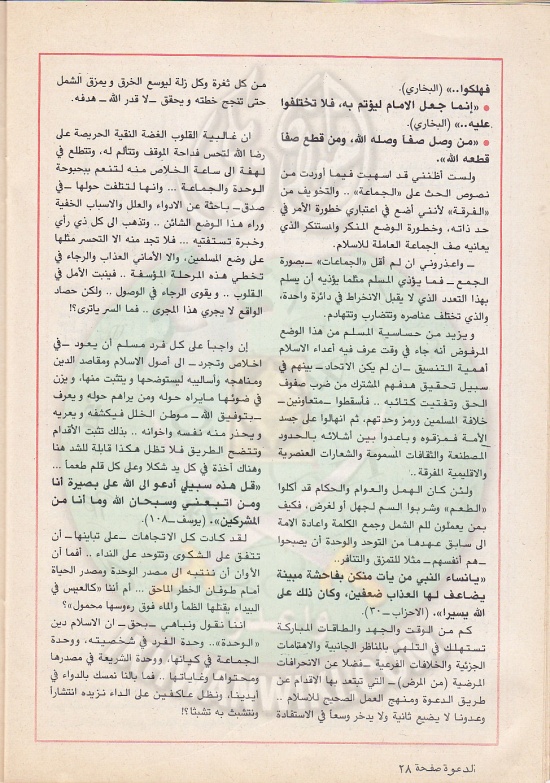 فهلكوا..» (البخاري).
● «إنما جعل الامام ليؤتم به، فلا تختلفوا
عليه..» (البخاري).
● «من وصل صفاً وصله الله، ومن قطع صفاً
قطعه الله».
ولست أظنني قد اسهبت فيما أوردت من
نصوص الحث على «الجماعة» .. والتخويف من
«الفرقة» لأنني أضع في اعتباري خطورة الأمر في
حد ذاته، وخطورة الوضع المنكر والمستنكر الذي
يعانيه صف الجماعة العاملة للاسلام.
ـ واعذروني ان لم أقل «الجماعات» ـ بصورة
الجمع ـ فما يؤذي المسلم مثلما يؤذيه أن يسلم
بهذا التعدد الذي لا يقبل الانخراط في دائرة واحدة،
والذي تختلف عناصره وتتضارب وتتهادم.
و يزيد من حساسية المسلم من هذا الوضع
المرفوض أنه جاء في وقت عرف فيه أعداء الاسلام
أهمية التنسيق ـ ان لم يكن الاتحاد ـ بينهم في
سبيل تحقيق هدفهم المشترك من ضرب صفوف
الحق وتفتيت كتائبه .. فأسقطوا ـ متعاونين ـ
خلافة المسلمين ورمز وحدتهم، ثم انهالوا على جسد
الأمة فمزقوه و باعدوا بين أشلائه بالحدود
المصطنعة والثقافات المسمومة والشعارات العنصرية
والاقليمية المفرقة ..
ولئن كان الهمل والعوام والحكام قد أكلوا
«الطعم» وشربوا السم لجهل أو لغرض، فكيف
بمن يعملون للم الشمل وجمع الكلمة واعادة الامة
الى سابق عهدها من التوحد والوحدة أن يصبحوا
ـ هم أنفسهم ـ مثلا للتمزق والتنافر..
«يانساء النبي من يأت منكن بفاحشة مبينة
يضاعف لها العذاب ضعفين، وكان ذلك على
الله يسيرا»، (الاحزاب ـ ٣٠).
كم من الوقت والجهد والطاقات المباركة
تستهلك في التلهي بالمناظر الجانبية والاهتمامات
الجزئية والخلافات الفرعية ـ فضلا عن الانحرافات
المرضية (من المرض) ـ التي تبتعد بها الاقدام عن
طريق الدعوة ومنهج العمل الصحيح للاسلام ..
وعدونا لا يضيع ثانية ولا يدخر وسعاً في الاستفادة
من كل ثغرة وكل زلة ليوسع الخرق و يمزق الشمل
حتى تنجح خطته و يحقق ـ لا قدر الله ـ هدفه.
ان غالبية القلوب الغضة النقية الحريصة على
رضا الله لتحس فداحة الموقف وتتألم له، وتتطلع في
لهفة الى ساعة الخلاص منه لتنعم ببحبوحة
الوحدة والجماعة ... وانها لتتلفت حولها ـ في
صدق ـ باحثة عن الادواء والعلل والاسباب الخفية
وراء هذا الوضع الشائن .. وتذهب الى كل ذي رأي
وخبرة تستفتيه ... فلا تجد منه الا التحسر مثلها
على وضع المسلمين، والا الأماني العذاب والرجاء في
تخطي هذه المرحلة المؤسفة .. فينبت الأمل في
القلوب .. و يقوى الرجاء في الوصول .. ولكن حصاد
الواقع لا يجري هذا المجرى .. فما السر ياترى؟!
إن واجباً على كل فرد مسلم أن يعود ـ في
اخلاص وتجرد ـ الى أصول الاسلام ومقاصد الدين
ومناهجه وأساليبه ليستوضحها و يتثبت منها، و يزن
في ضوئها مايراه حوله ومن يراهم حوله و يعرف
ـ بتوفيق الله ـ موطن الخلل فيكشفه و يعريه
و يحذر منه نفسه واخوانه .. بذلك تثبت الأقدام
وتتضح الطريق فلا تظل هكذا قابلة للشد هنا
وهناك آخذة في كل يد شكلا وعلى كل فلم طعماً ...
«قل هذه سبيلي أدعو الى الله على بصيرة أنا
ومن اتبعني وسبحان الله وما أنا من
المشركين»، (يوسف ـ ١٠٨).
لقد كادت كل الاتجاهات ـ على تباينها ـ أن
تتفق على الشكوى وتتوحد على النداء .. أفما آن
الأوان أن ننتبه الى مصدر الوحدة ومصدر الحياة
أمام طوفان الخطر الماحق .. أم أننا «كالعيس في
البيداء يقتلها الظمأ والماء فوق رءوسها محمول»؟
اننا نقول ونباهي ـ بحق ـ ان الاسلام دين
«الوحدة».. وحدة الفرد في شخصيته، ووحدة
الجماعة في كيانها، ووحدة الشريعة في مصدرها
ومحتواها وغاياتها .. فما بالنا نمسك بالدواء في
أيدينا، ونظل عاكفين على الداء نزيده انتشاراً
ونتشبث به تشبثا؟!
الدعوة صفحة ٢٨